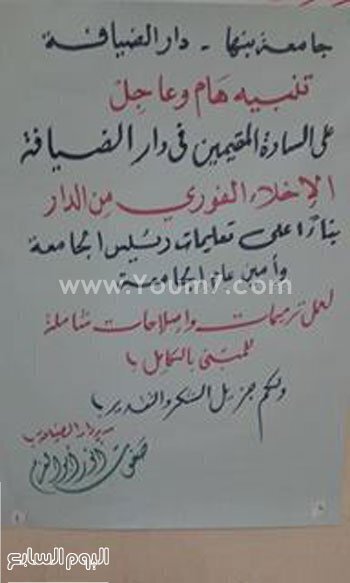 جامعة بنها - دار الضيافة
تنبيه هام وعاجل
على السادة المقيمين فى دار الضيافة
الإخلاء الفوري من الدار
بناءً على تعليمات رئيس الجامعة
وأمين عام الجامعة
www.Youm7.com
لعمل ترميمات وإصلاحات شاملة
للمبنى بالكامل
ولكم جزيل الشكر والتقدير
مدير دار الضيافة
صفوت
اليوم السابع